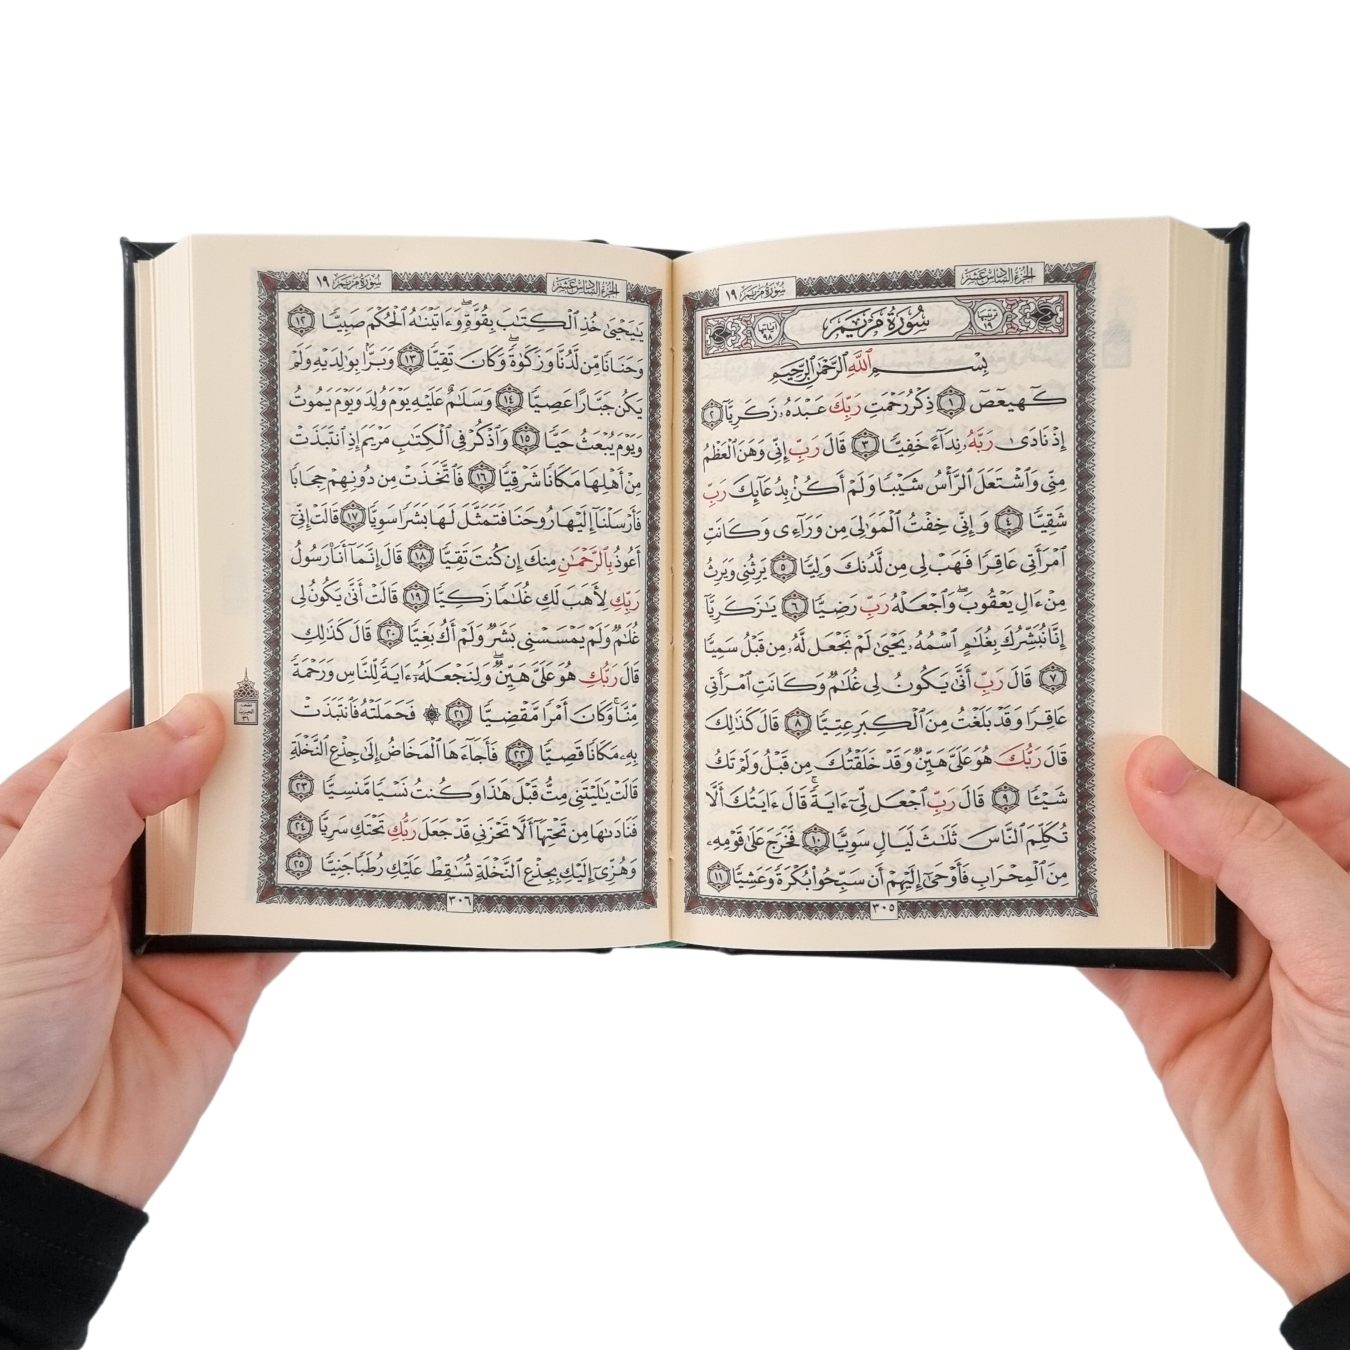 الجزء السادس عشر
سورة مريم ١٩
ترتيبها ١٩
سُورَةُ مَرْيَمَ
آياتها ٩٨
بِسْمِ ٱللَّهِ ٱلرَّحْمَٰنِ ٱلرَّحِيمِ
كٓهيعٓصٓ ١ ذِكْرُ رَحْمَتِ رَبِّكَ عَبْدَهُۥ زَكَرِيَّآ ٢
إِذْ نَادَىٰ رَبَّهُۥ نِدَآءً خَفِيًّا ٣ قَالَ رَبِّ إِنِّى وَهَنَ ٱلْعَظْمُ
مِنِّى وَٱشْتَعَلَ ٱلرَّأْسُ شَيْبًا وَلَمْ أَكُنۢ بِدُعَآئِكَ رَبِّ
شَقِيًّا ٤ وَإِنِّى خِفْتُ ٱلْمَوَٰلِىَ مِن وَرَآءِى وَكَانَتِ
ٱمْرَأَتِى عَاقِرًا فَهَبْ لِى مِن لَّدُنكَ وَلِيًّا ٥ يَرِثُنِى وَيَرِثُ
مِنْ ءَالِ يَعْقُوبَ ۖ وَٱجْعَلْهُ رَبِّ رَضِيًّا ٦ يَٰزَكَرِيَّآ
إِنَّا نُبَشِّرُكَ بِغُلَٰمٍ ٱسْمُهُۥ يَحْيَىٰ لَمْ نَجْعَل لَّهُۥ مِن قَبْلُ سَمِيًّا
٧ قَالَ رَبِّ أَنَّىٰ يَكُونُ لِى غُلَٰمٌ وَكَانَتِ ٱمْرَأَتِى
عَاقِرًا وَقَدْ بَلَغْتُ مِنَ ٱلْكِبَرِ عِتِيًّا ٨ قَالَ كَذَٰلِكَ
قَالَ رَبُّكَ هُوَ عَلَىَّ هَيِّنٌ وَقَدْ خَلَقْتُكَ مِن قَبْلُ وَلَمْ تَكُ
شَيْـًٔا ٩ قَالَ رَبِّ ٱجْعَل لِّىٓ ءَايَةً ۚ قَالَ ءَايَتُكَ أَلَّا
تُكَلِّمَ ٱلنَّاسَ ثَلَٰثَ لَيَالٍ سَوِيًّا ١٠ فَخَرَجَ عَلَىٰ قَوْمِهِۦ
مِنَ ٱلْمِحْرَابِ فَأَوْحَىٰٓ إِلَيْهِمْ أَن سَبِّحُوا۟ بُكْرَةً وَعَشِيًّا ١١
٣٠٥
الجزء السادس عشر
سورة مريم ١٩
يَٰيَحْيَىٰ خُذِ ٱلْكِتَٰبَ بِقُوَّةٍ ۖ وَءَاتَيْنَٰهُ ٱلْحُكْمَ صَبِيًّا ١٢
وَحَنَانًا مِّن لَّدُنَّا وَزَكَوٰةً ۖ وَكَانَ تَقِيًّا ١٣ وَبَرًّۢا بِوَٰلِدَيْهِ وَلَمْ
يَكُن جَبَّارًا عَصِيًّا ١٤ وَسَلَٰمٌ عَلَيْهِ يَوْمَ وُلِدَ وَيَوْمَ يَمُوتُ
وَيَوْمَ يُبْعَثُ حَيًّا ١٥ وَٱذْكُرْ فِى ٱلْكِتَٰبِ مَرْيَمَ إِذِ ٱنتَبَذَتْ
مِنْ أَهْلِهَا مَكَانًا شَرْقِيًّا ١٦ فَٱتَّخَذَتْ مِن دُونِهِمْ حِجَابًا
فَأَرْسَلْنَآ إِلَيْهَا رُوحَنَا فَتَمَثَّلَ لَهَا بَشَرًا سَوِيًّا ١٧ قَالَتْ إِنِّىٓ
أَعُوذُ بِٱلرَّحْمَٰنِ مِنكَ إِن كُنتَ تَقِيًّا ١٨ قَالَ إِنَّمَآ أَنَا۠ رَسُولُ
رَبِّكِ لِأَهَبَ لَكِ غُلَٰمًا زَكِيًّا ١٩ قَالَتْ أَنَّىٰ يَكُونُ لِى
غُلَٰمٌ وَلَمْ يَمْسَسْنِى بَشَرٌ وَلَمْ أَكُ بَغِيًّا ٢٠ قَالَ كَذَٰلِكِ
قَالَ رَبُّكِ هُوَ عَلَىَّ هَيِّنٌ ۖ وَلِنَجْعَلَهُۥٓ ءَايَةً لِّلنَّاسِ وَرَحْمَةً
مِّنَّا ۚ وَكَانَ أَمْرًا مَّقْضِيًّا ٢١ ۞ فَحَمَلَتْهُ فَٱنتَبَذَتْ
بِهِۦ مَكَانًا قَصِيًّا ٢٢ فَأَجَآءَهَا ٱلْمَخَاضُ إِلَىٰ جِذْعِ ٱلنَّخْلَةِ
قَالَتْ يَٰلَيْتَنِى مِتُّ قَبْلَ هَٰذَا وَكُنتُ نَسْيًا مَّنسِيًّا ٢٣
فَنَادَىٰهَا مِن تَحْتِهَآ أَلَّا تَحْزَنِى قَدْ جَعَلَ رَبُّكِ تَحْتَكِ سَرِيًّا ٢٤
وَهُزِّىٓ إِلَيْكِ بِجِذْعِ ٱلنَّخْلَةِ تُسَٰقِطْ عَلَيْكِ رُطَبًا جَنِيًّا ٢٥
٣٠٦